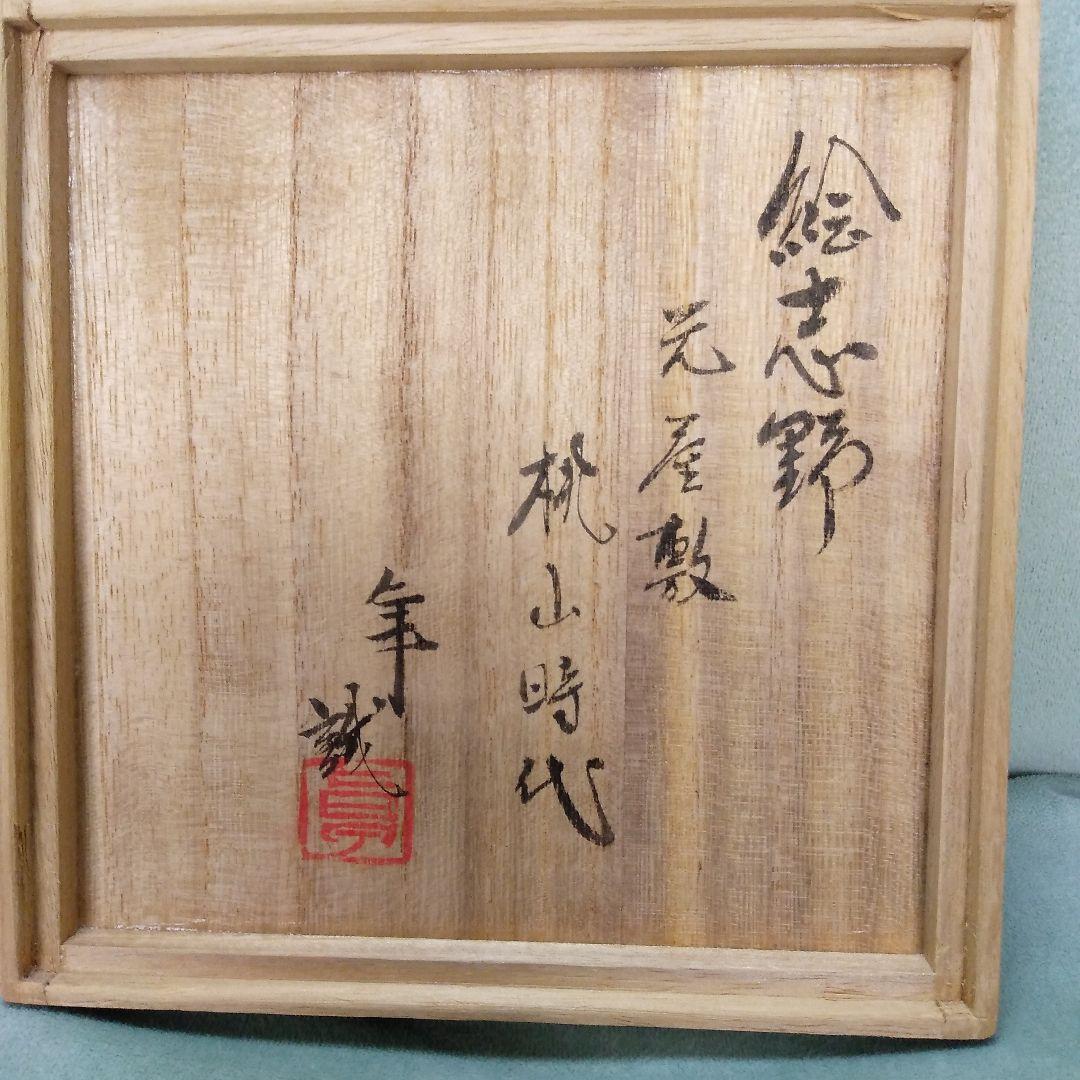 絵志野
元屋敷
桃山時代
年
誠